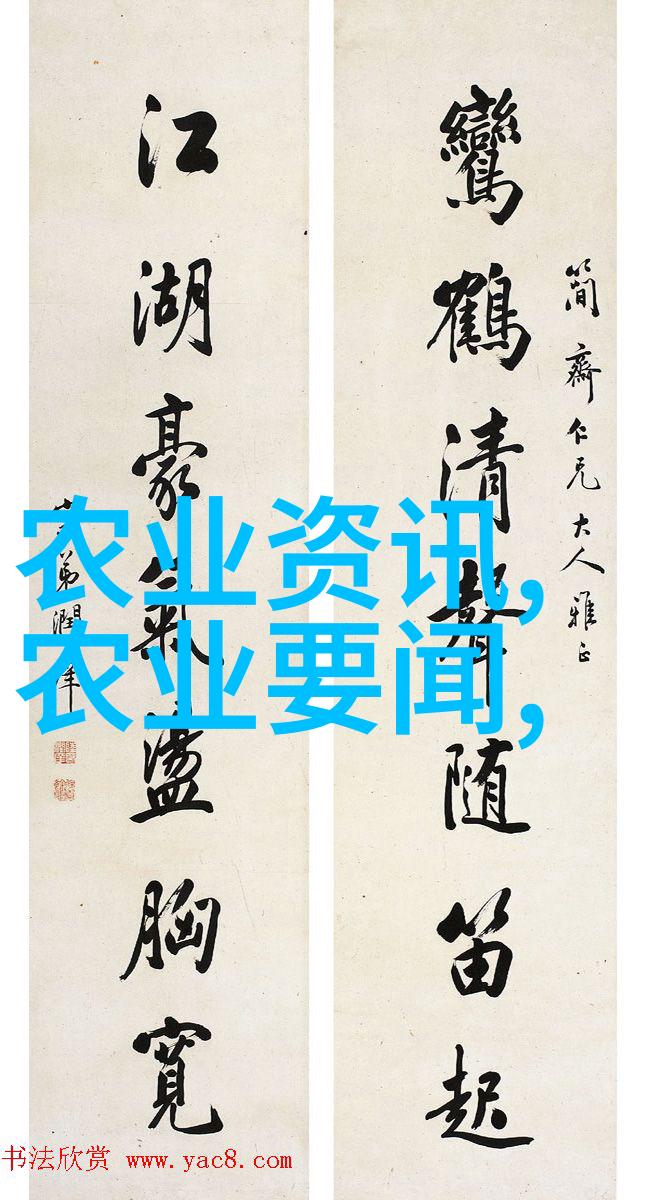 簡齋仁兄大人雅正
鸞鶴清聲随笛起
江湖豪氣盪胸寬
弟潤庠
农业资讯,
农业要闻,
书法欣赏 www.yac8.com